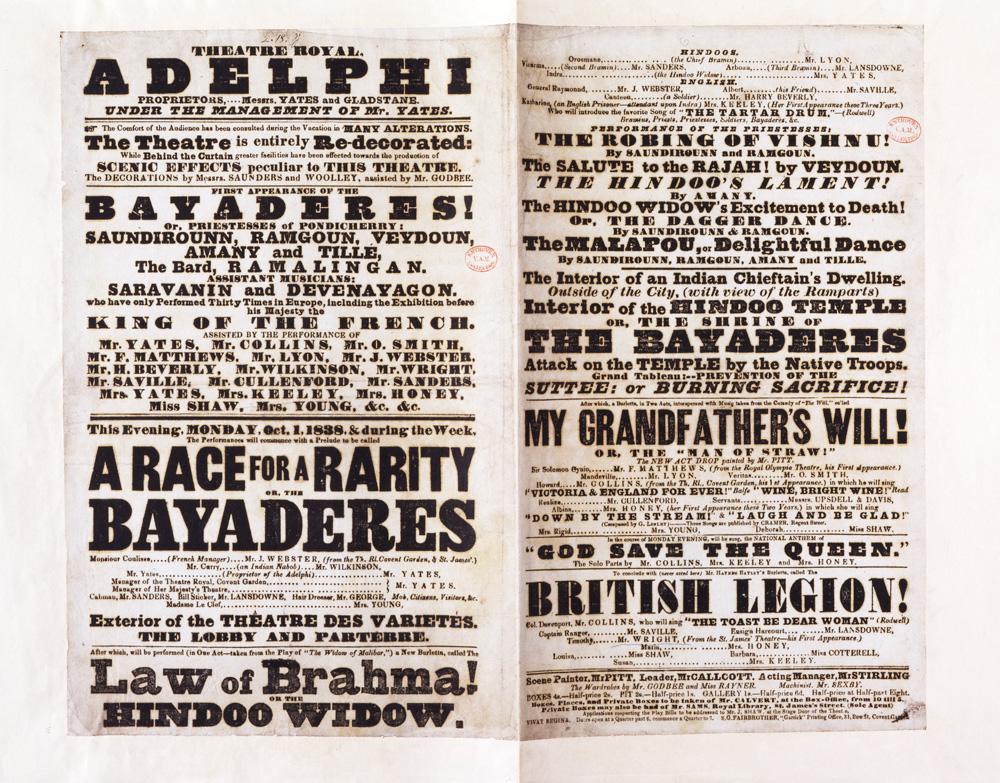 THEATRE ROYAL,
ADELPHI
PROPRIETORS,....Messrs. YATES and GLADSTANE.
UNDER THE MANAGEMENT OF Mr. YATES.
The Comfort of the Audience has been consulted during the Vacation in MANY ALTERATIONS.
The Theatre is entirely Re-decorated:
While Behind the Curtain greater facilities have been effected towards the production of
SCENIC EFFECTS peculiar to THIS THEATRE.
The DECORATIONS by Messrs. SAUNDERS and WOOLLEY, assisted by Mr. GODBEE.
FIRST APPEARANCE OF THE
BAYADERES!
Or, PRIESTESSES of PONDICHERRY:
SAUNDIROUNN, RAMGOUN, VEYDOUN,
AMANY and TILLE,
The Bard, RAMALINGAN.
ASSISTANT MUSICIANS:
SARAVANIN and DEVENAYAGON.
who have only Performed Thirty Times in Europe, including the Exhibition before
his Majesty the
KING OF THE FRENCH.
ASSISTED BY THE PERFORMANCE OF
Mr. YATES, Mr. COLLINS, Mr. O. SMITH,
Mr. F. MATTHEWS, Mr. LYON, Mr. J. WEBSTER,
Mr. H. BEVERLY, Mr. WILKINSON, Mr. WRIGHT,
Mr. SAVILLE, Mr. CULLENFORD, Mr. SANDERS,
Mrs. YATES, Mrs. KEELEY, Mrs. HONEY,
Miss SHAW, Mrs. YOUNG, &c. &c.
This Evening, MONDAY, Oct. 1, 1838, & during the Week,
The Performances will commence with a Prelude to be called
A RACE FOR A RARITY
OR, THE
BAYADERES
Monsieur Coulisse,....(French Manager)....Mr. J. WEBSTER, (from the Th. Rl. Covent Garden, & St. James'.)
Mr. Curry,....(an Indian Nabob)....Mr. WILKINSON,
Mr. Yates,....(Proprietor of the Adelphi)....Mr. YATES,
Manager of the Theatre Royal, Covent Garden,....
Manager of Her Majesty's Theatre,.... } Mr. YATES,
Cabman, Mr. SANDERS, Bill Sticker, Mr. LANSDOWNE, Hair Dresser, Mr. GEORGE, Mob, Citizens, Visitors, &c.
Madame Le Clef,....Mrs. YOUNG,
Exterior of the THÉATRE DES VARIETÉS.
THE LOBBY AND PARTERRE.
After which, will be performed (in One Act—taken from the Play of "The Widow of Malibar,") a New Burletta, called The
Law of Brahma!
OR THE
HINDOO WIDOW.
HINDOOS.
Orosmane,....(the Chief Bramin)....Mr. LYON,
....(Second Bramin)....Mr. SANDERS, Arboun,....(Third Bramin)....Mr. LANSDOWNE,
Indra,....(the Hindoo Widow)....Mrs. YATES,
ENGLISH.
General Raymond,....Mr. J. WEBSTER, Albert,....(his Friend)....Mr. SAVILLE,
Canteen,....(a Soldier)....Mr. HARRY BEVERLY,
Katharine, (an English Prisoner—attendant upon Indra) Mrs. KEELEY, (Her First Appearance these Three Years.)
Who will introduce the favorite Song of "THE TARTAR DRUM,"—(Rodwell)
Bramins, Priests, Priestesses, Soldiers, Bayaderes, &c.
PERFORMANCE OF THE PRIESTESSES:
THE ROBING OF VISHNU!
By SAUNDIROUNN and RAMGOUN.
The SALUTE to the RAJAH! by VEYDOUN.
THE HINDOO'S LAMENT!
By AMANY.
The HINDOO WIDOW's Excitement to Death!
Or, THE DAGGER DANCE.
By SAUNDIROUNN & RAMGOUN.
The MALAPOU, or Delightful Dance
By SAUNDIROUNN, RAMGOUN, AMANY and TILLE.
The Interior of an Indian Chieftain's Dwelling.
Outside of the City, (with view of the Ramparts)
Interior of the HINDOO TEMPLE
OR, THE SHRINE OF
THE BAYADERES
Attack on the TEMPLE by the Native Troops.
Grand Tableau:--PREVENTION OF THE
SUTTEE: or BURNING SACRIFICE!
After which, a Burletta, in Two Acts, interspersed with Music taken from the Comedy of "The Will," called
MY GRANDFATHER'S WILL!
OR, THE "MAN OF STRAW!"
The NEW ACT DROP painted by Mr. PITT.
Sir Solomon Cynic,....Mr. F. MATTHEWS, (from the Royal Olympic Theatre, his First Appearance.)
Mandeville,....Mr. LYON, Veritas,....Mr. O. SMITH,
Howard,....Mr. COLLINS, (from the Th. Rl. Covent Garden, his 1st Appearance.) in which he will sing
"VICTORIA & ENGLAND FOR EVER!" Balfe "WINE, BRIGHT WINE!" Read
Realize,....Mr. CULLENFORD, Servants,....Messrs. UPSDELL & DAVIS,
Albina,....Mrs. HONEY, (her First Appearance these Two Years.) in which she will sing
"DOWN BY THE STREAM!" & "LAUGH AND BE GLAD!"
(Composed by G. LINLEY)——These Songs are published by CRAMER, Regent Street.
Mrs. Rigid,....Mrs. YOUNG, Deborah,....Miss SHAW.
In the course of MONDAY EVENING, will be sung, the NATIONAL ANTHEM of
"GOD SAVE THE QUEEN."
The Solo Parts by Mr. COLLINS, Mrs. KEELEY and Mrs. HONEY.
To conclude with (never acted here) Mr. HAYNES BAYLEY's Burletta, called The
BRITISH LEGION!
Col. Davenport, Mr. COLLINS, who will sing "THE TOAST BE DEAR WOMAN" (Rodwell)
Captain Ranger,....Mr. SAVILLE, Ensign Harcourt,....Mr. LANSDOWNE,
Timothy,....Mr. WRIGHT, (From the St. James' Theatre—his First Appearance.)
Maria,....Mrs. HONEY,
Louisa,....Miss SHAW, Barbara,....Miss COTTERELL,
Susan,....Mrs. KEELEY.
Scene Painter, Mr PITT, Leader, Mr CALLCOTT. Acting Manager, Mr STIRLING
The Wardrobes by Mr. GODBEE and Miss RAYNER. Machinist. Mr. SEXBY.
BOXES 4s.—Half-price 2s. PIT 2s.—Half-price 1s. GALLERY 1s.—Half-price 6d. Half-price at Half-past Eight.
Boxes, Places, and Private Boxes to be taken of Mr. CALVERT, at the Box-Office, from 10 till 5.
Private Boxes may also be had of Mr. SAMS, Royal Library, St. James's Street. (Sole Agent)
Applications respecting the Play Bills to be addressed to Mr. J. SHAW, at the Stage Door of the Theatre,
VIVAT REGINA. Doors open at a Quarter past 6, commence a Quarter to 7. S.G. FAIRBROTHER, "Garrick" Printing Office, 31, Bow St. Covent Garden
ENTHOVEN
V.A.M.
COLLECTION
ENTHOVEN
V.A.M.
COLLECTION